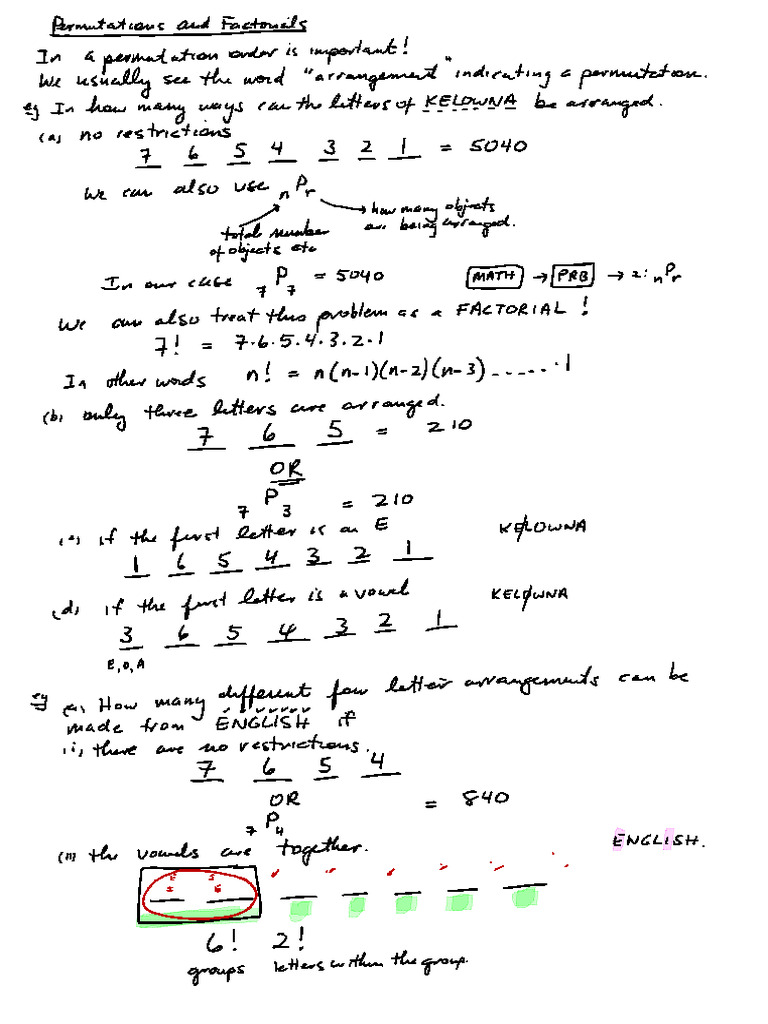 Permutations and Factorials
In a permutation order is important!
We usually see the word "arrangement" indicating a permutation.
eg In how many ways can the letters of KELOWNA be arranged.
(a) no restrictions
7 6 5 4 3 2 1 = 5040
We can also use nPr
total number of objects etc
how many objects are being arranged.
In our case 7P7 = 5040 MATH → PRB → 2: nPr
We can also treat this problem as a FACTORIAL!
7! = 7·6·5·4·3·2·1
In other words n! = n(n-1)(n-2)(n-3)......·1
(b) only three letters are arranged.
7 6 5 = 210
OR
7P3 = 210
(c) if the first letter is an E KELOWNA
1 6 5 4 3 2 1
(d) if the first letter is a vowel KELOWNA
3 6 5 4 3 2 1
E, O, A
eg (a) How many different four letter arrangements can be
made from ENGLISH if
(i) there are no restrictions.
7 6 5 4
OR = 840
7P4
(ii) the vowels are together. ENGLISH.
6! 2!
groups letters within the group.